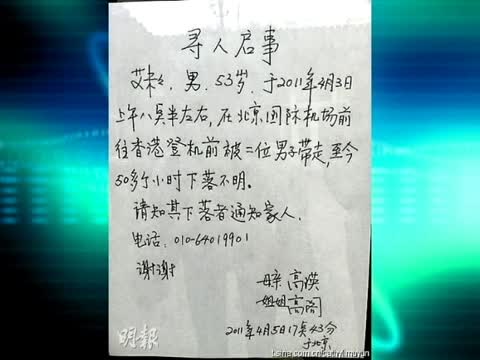 寻人启事
艾未未，男，53岁，于2011年4月3日
上午八点半左右，在北京国际机场前
往香港登机前被二位男子带走，至今
50多个小时下落不明。
请知其下落者通知家人。
电话：010-64019901
谢谢
母亲 高瑛
姐姐 高阁
2011年4月5日17点43分
于北京
明報